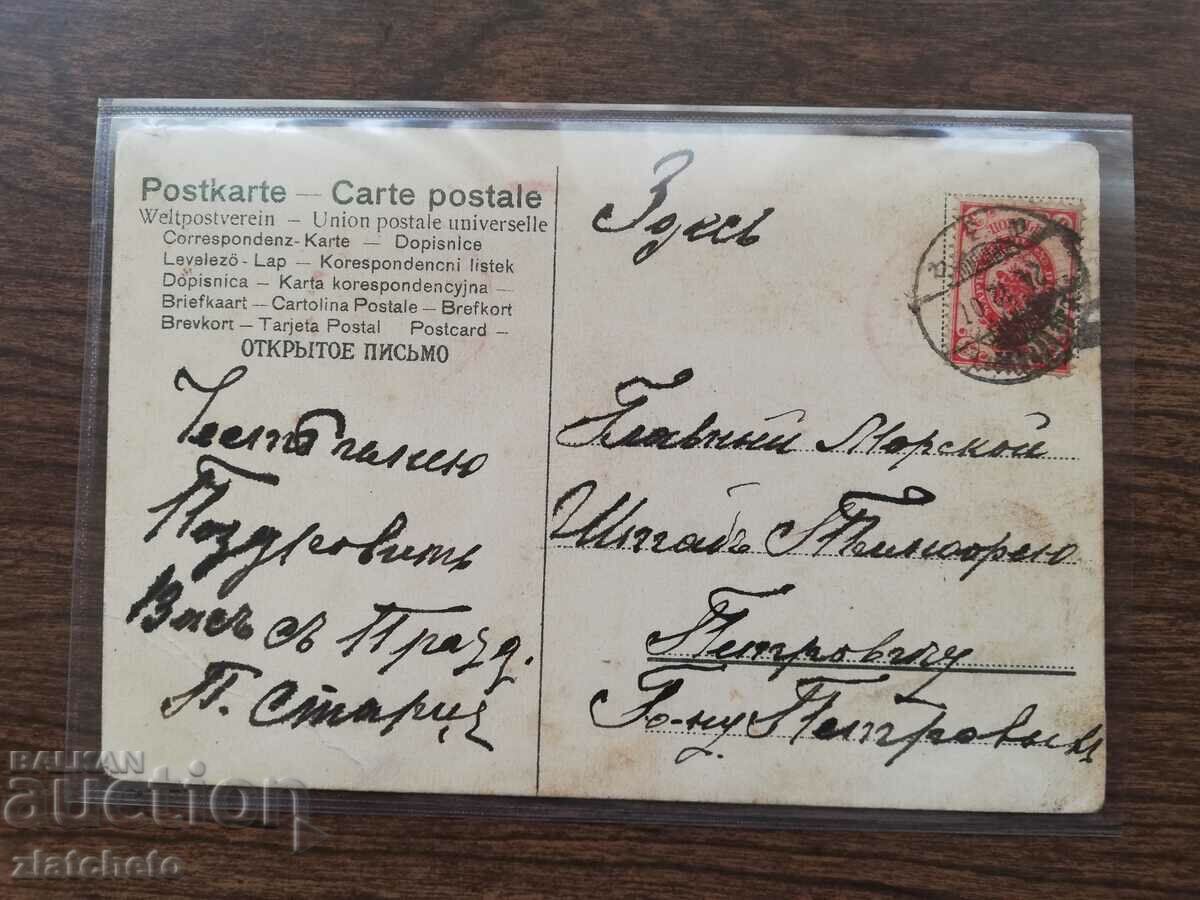 Postkarte — Carte postale
Weltpostverein — Union postale universelle
Correspondenz-Karte — Dopisnice
Levelező-Lap — Korespondencni listek
Dopisnica — Karta korespondencyjna —
Briefkaart — Cartolina Postale — Brefkort
Brevkort — Tarjeta Postal Postcard —
ОТКРЫТОЕ ПИСЬМО
Поздровить
Васъ съ Празд.
П. Стариц
Здесь
Главний Морской
Штабъ Тимофрею
Петровичу
Г-ну Петровым
BALKAN
auction
zlatcheto